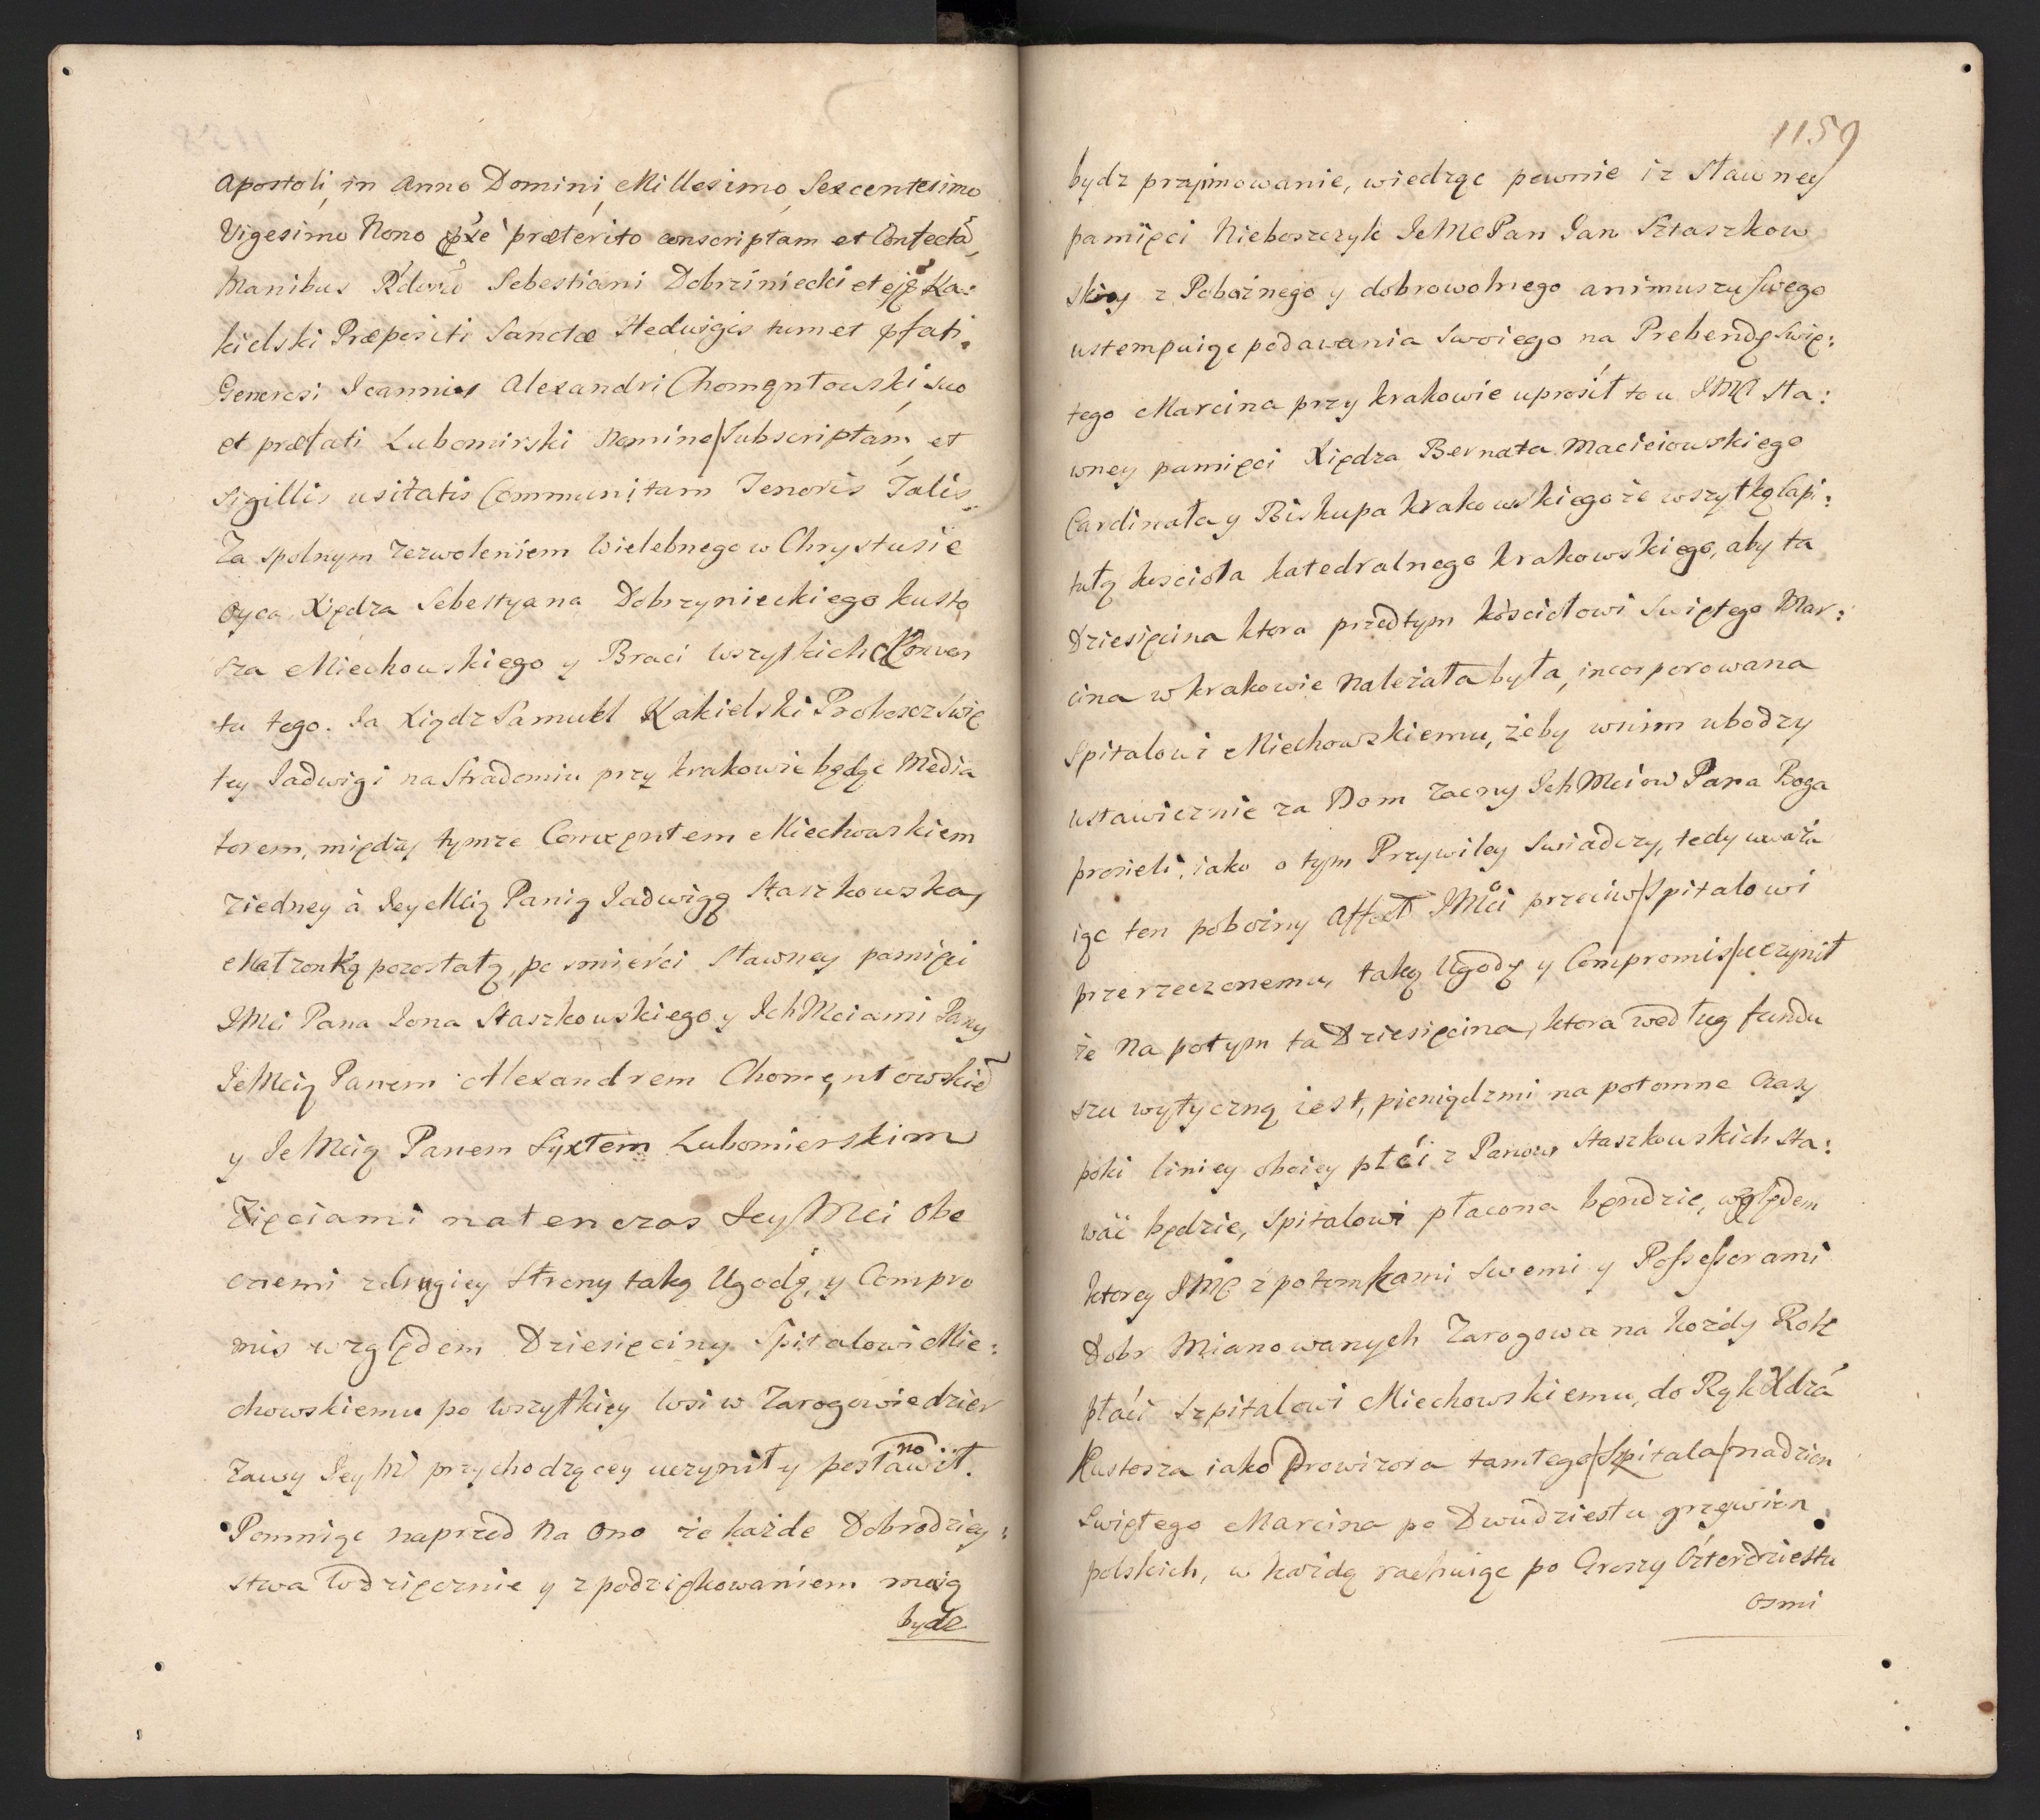 Apostoli, in Anno Domini, Millesimo, Sexcentesimo
Vigesimo Nono præterito conscriptam et Confectã,
Manibus Rdorũ Sebestiani Dobriniecki et Na:
kielski Præpositi Sanctæ Hedwigis tum et pfati.
Generosi Joannis Alexandri Chomętowski suo
et præfati Lubomirski Nomine/Subscriptam, et
Sigillis usitatis Communitam Tenoris Talis.
Za spolnym Zezwoleniem Wielebnego w Chrystusie
Oyca, Xiędza Sebestyana Dobrzynieckiego kusto
sza Miechowskiego y Braci wszytkich Conven
tu tego. Ja Xiądz Samuel Nakielski Proboszcz Swię
tey Jadwigi na Stradomiu przy krakowie będąc Media
torem, między tymze Conwentem Miechowskiem
ziedney à Jey Mcią Panią Jadwigą Staszkowską
Małzonką pozostałą, po smierci Sławney pamięci
JMci Pana Jana Staszkowskiego y Ich Mciami Pany
JeMcią Panem Alexandrem Chomęntowskiē
y JeMcią Panem Syxtem Lubomierskim
Zięciami natenczas Jey Mci obe
cnemi zdrugiey Strony taką Ugodę, y Compro
mis względem Dziesięciny Spitalowi Mie:
chowskiemu po wszytkiey wsi w Zarogowie dzier
zawy Jey M przychodzącey uczynił y postanowił.
Pomniąc naprzed na ono ze każde Dobrodziey:
stwa wdzięcznie y z podziękowaniem maią
bydz
1159
bydz przyimowanie, wiedząc pewnie iz sławney
pamięci Nieboszczyk JeMc Pan Jan Sztaszkow
sky z Pobożnego y dobrowolnego animuszu Swego
ustempuiąc podawania Swoiego na Prebendę Swię:
tego Marcina przy krakowie uprosił to u JMCi Sła:
wney pamięci Xiędza Bernata Macieiowskiego
Cardinała y Biskupa krakowskiego ze wszytką Capi:
tułą koscioła katedralnego krakowskiego, aby ta
Dziesięcina ktora przedtym kościołowi Swiętego Mar:
cina w krakowie Należała była, incorporowana
Spitalowi Miechowskiemu, żeby wnim ubodzy
ustawicznie za Dom zacny Ich Mciow Pana Boga
prosieli, iako o tym Przywiley Swiadczy, tedy uważa
iąc ten pobożny Affect JMci przeciw/Spitalowi
przerzeczonemu, taką Ugodę y Compromis/uczynił
że na potym ta Dziesięcina, ktora według fundu
szu wytyczną iest, pieniądzmi na potomne Czasy
poki liniey oboiey płci z Panow Staszkowskich Sta:
wać będzie, Spitalowi płacona bęndzie, względem
ktorey JMC z potomkami Swemi y Possessorami
Dobr Mianowanych Zarogowa na każdy Rok
płaci Szpitalowi Miechowskiemu, do Rąk Xdza
Kustosza iako Prowizora tamtego/Szpitala/nadzien
Swiętego Marcina po Dwudziestu grzywien
polskich, w każdą rachuiąc po Groszy Czterdziestu
osmi